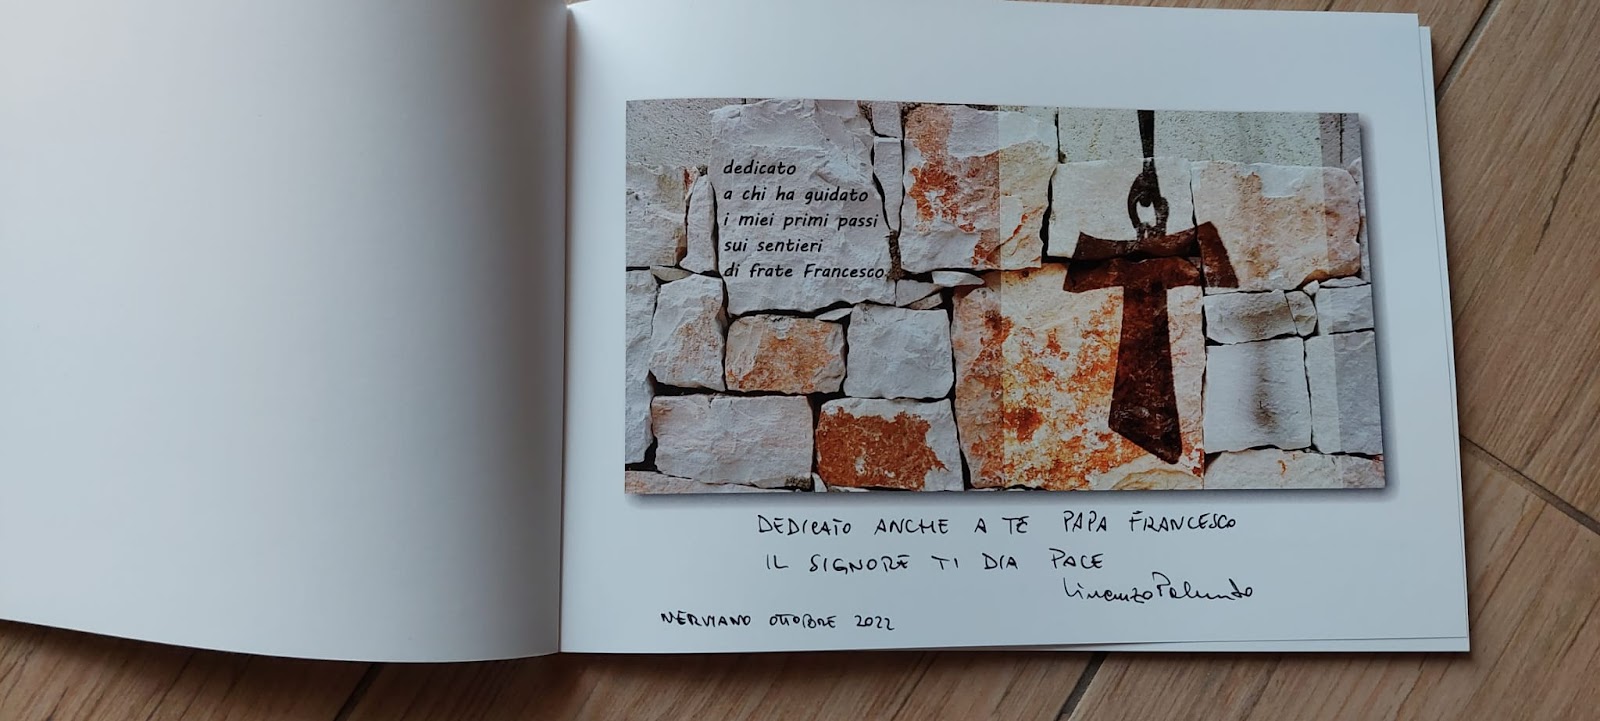 dedicato
a chi ha guidato
i miei primi passi
sui sentieri
di frate Francesco
DEDICATO ANCHE A TE PAPA FRANCESCO
IL SIGNORE TI DIA PACE
NERVIANO OTTOBRE 2022